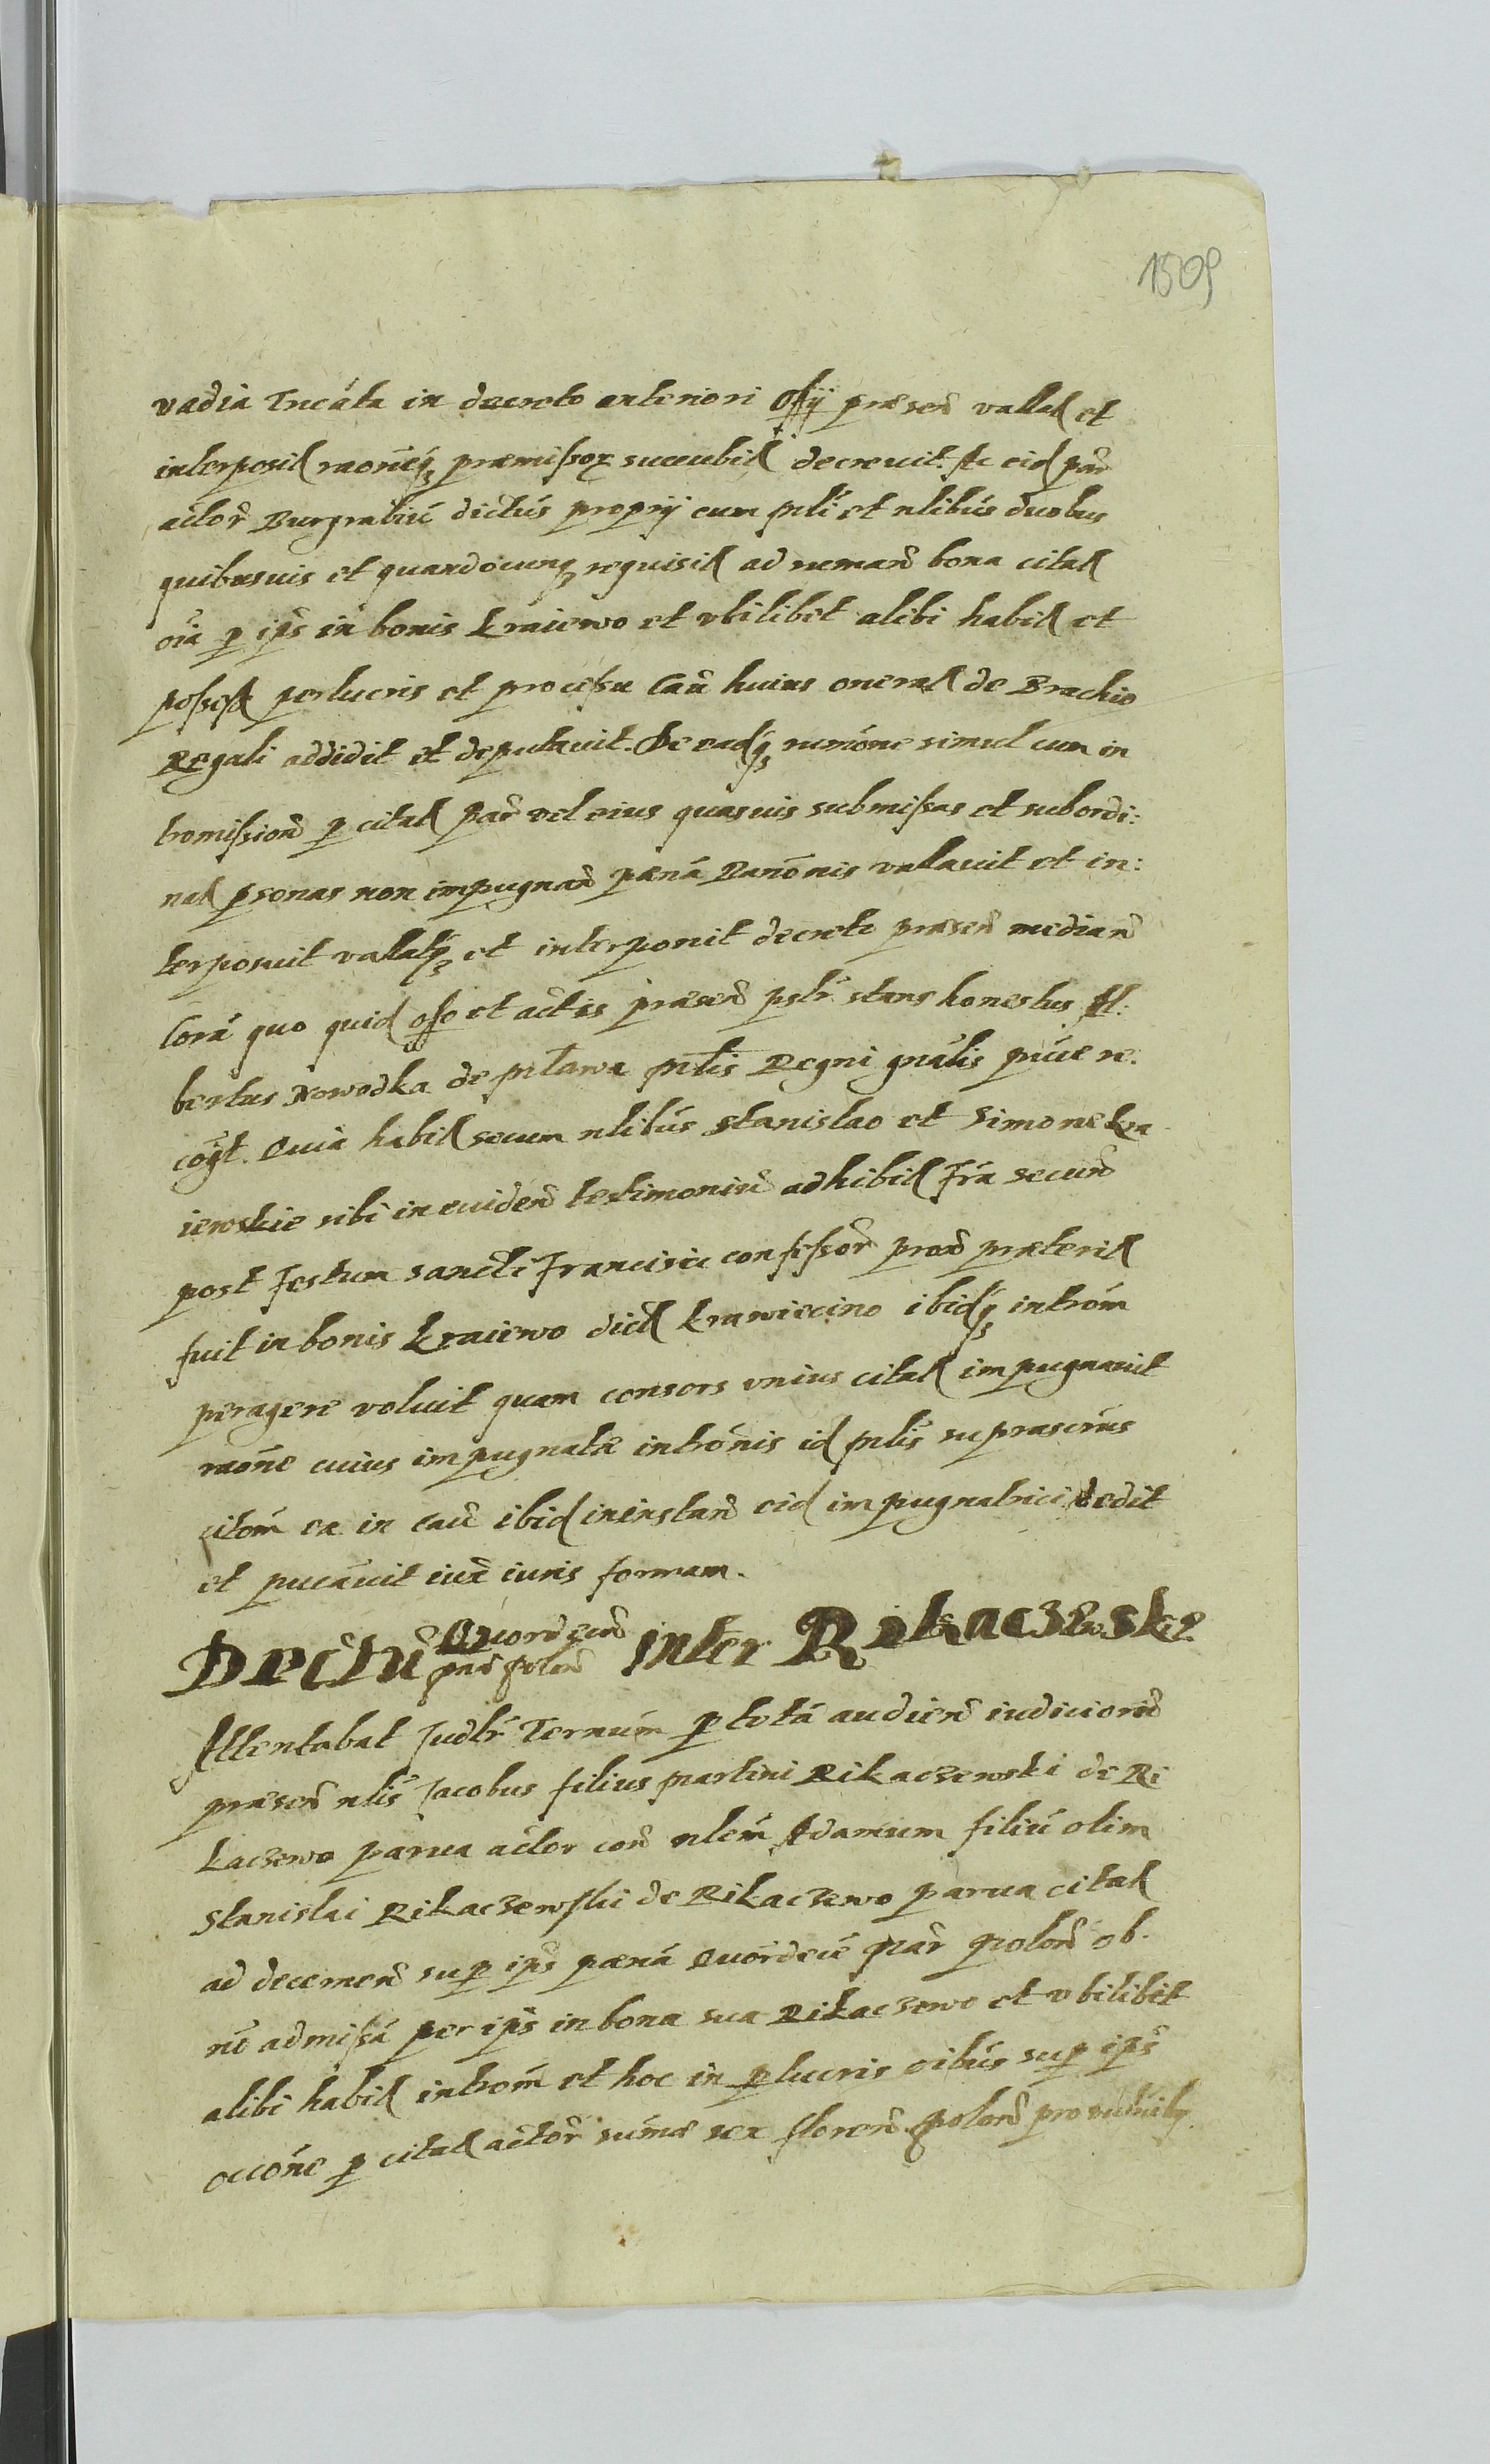 1509
vadia Tncáta in decreto anteriori Offÿ præsen̄ vallat et
interposit raōneq3 præmissoꝝ succubit decreuit. Ac eid par̄
actor̄ Burgrabiū dictús proprÿ cum mlī et nlibús duobus
quibusuis et quandocunq3 requisit ad reman̄ bona citat
oīa p ip̄s in bonis Kraiewo et vbilibet alibi habit et
possess perlucris et processu Caū huius onerat de Brachio
Regali addidit et deputauit. De eadq3 rumōne simul cum in
tromission̄ p citat par̄ vel eius quasuis submissas et subordi:
nat psonas non impugnan̄ pæná Banōnis vallauit et in:
terposuit vallatq3 et interponit decreto præsen̄ median̄
Corá quo quid offo et actis præsen̄ psltr̄ stans honestus Al:
bertus Nowodka de mława mlis Regni gnālis púce re:
cogt. Quia habit secum nlibús Stanislao et Simone Kra
iewskie sibi in euiden̄ testimoniū adhibit Fra secun̄
post Festum sancti Francisci confessor̄ prox̄ præterit
fuit in bonis Kraiewo dict Krawiecino ibidq3 introm̄
peragere voluit quam consors vnius citat impugnauit
raōne cuius impugnatæ intronis id mlis suprascrūs
citom̄ ea in caū ibid ininstan̄ eid impugnatrici dedit
et pucāuit iux̄ iuris formam.
Dectū Quordecim mar̄ polon̄ inter Rikaczewskie.
Attentabat Judtr̄ Ternúm p totá audien̄ iudiciorū
præsen̄ nlis Jacobus filius martini Rikaczewski de Ri
kaczewo parua actor con̄ nlem̄ Adamum filiū olim
Stanislai Rikaczewski de Rikaczewo parua citat
ad decernen̄ sup ip̄s pæná Quordecē mar̄ polon̄ ob.
nō admissá per ip̄s in bona sua Rikaczewo et vbilibet
alibi habit introm̄ et hoc in plucris oibús sup ip̄s
occōne p citat actor̄ sumæ sex floren̄ polon̄